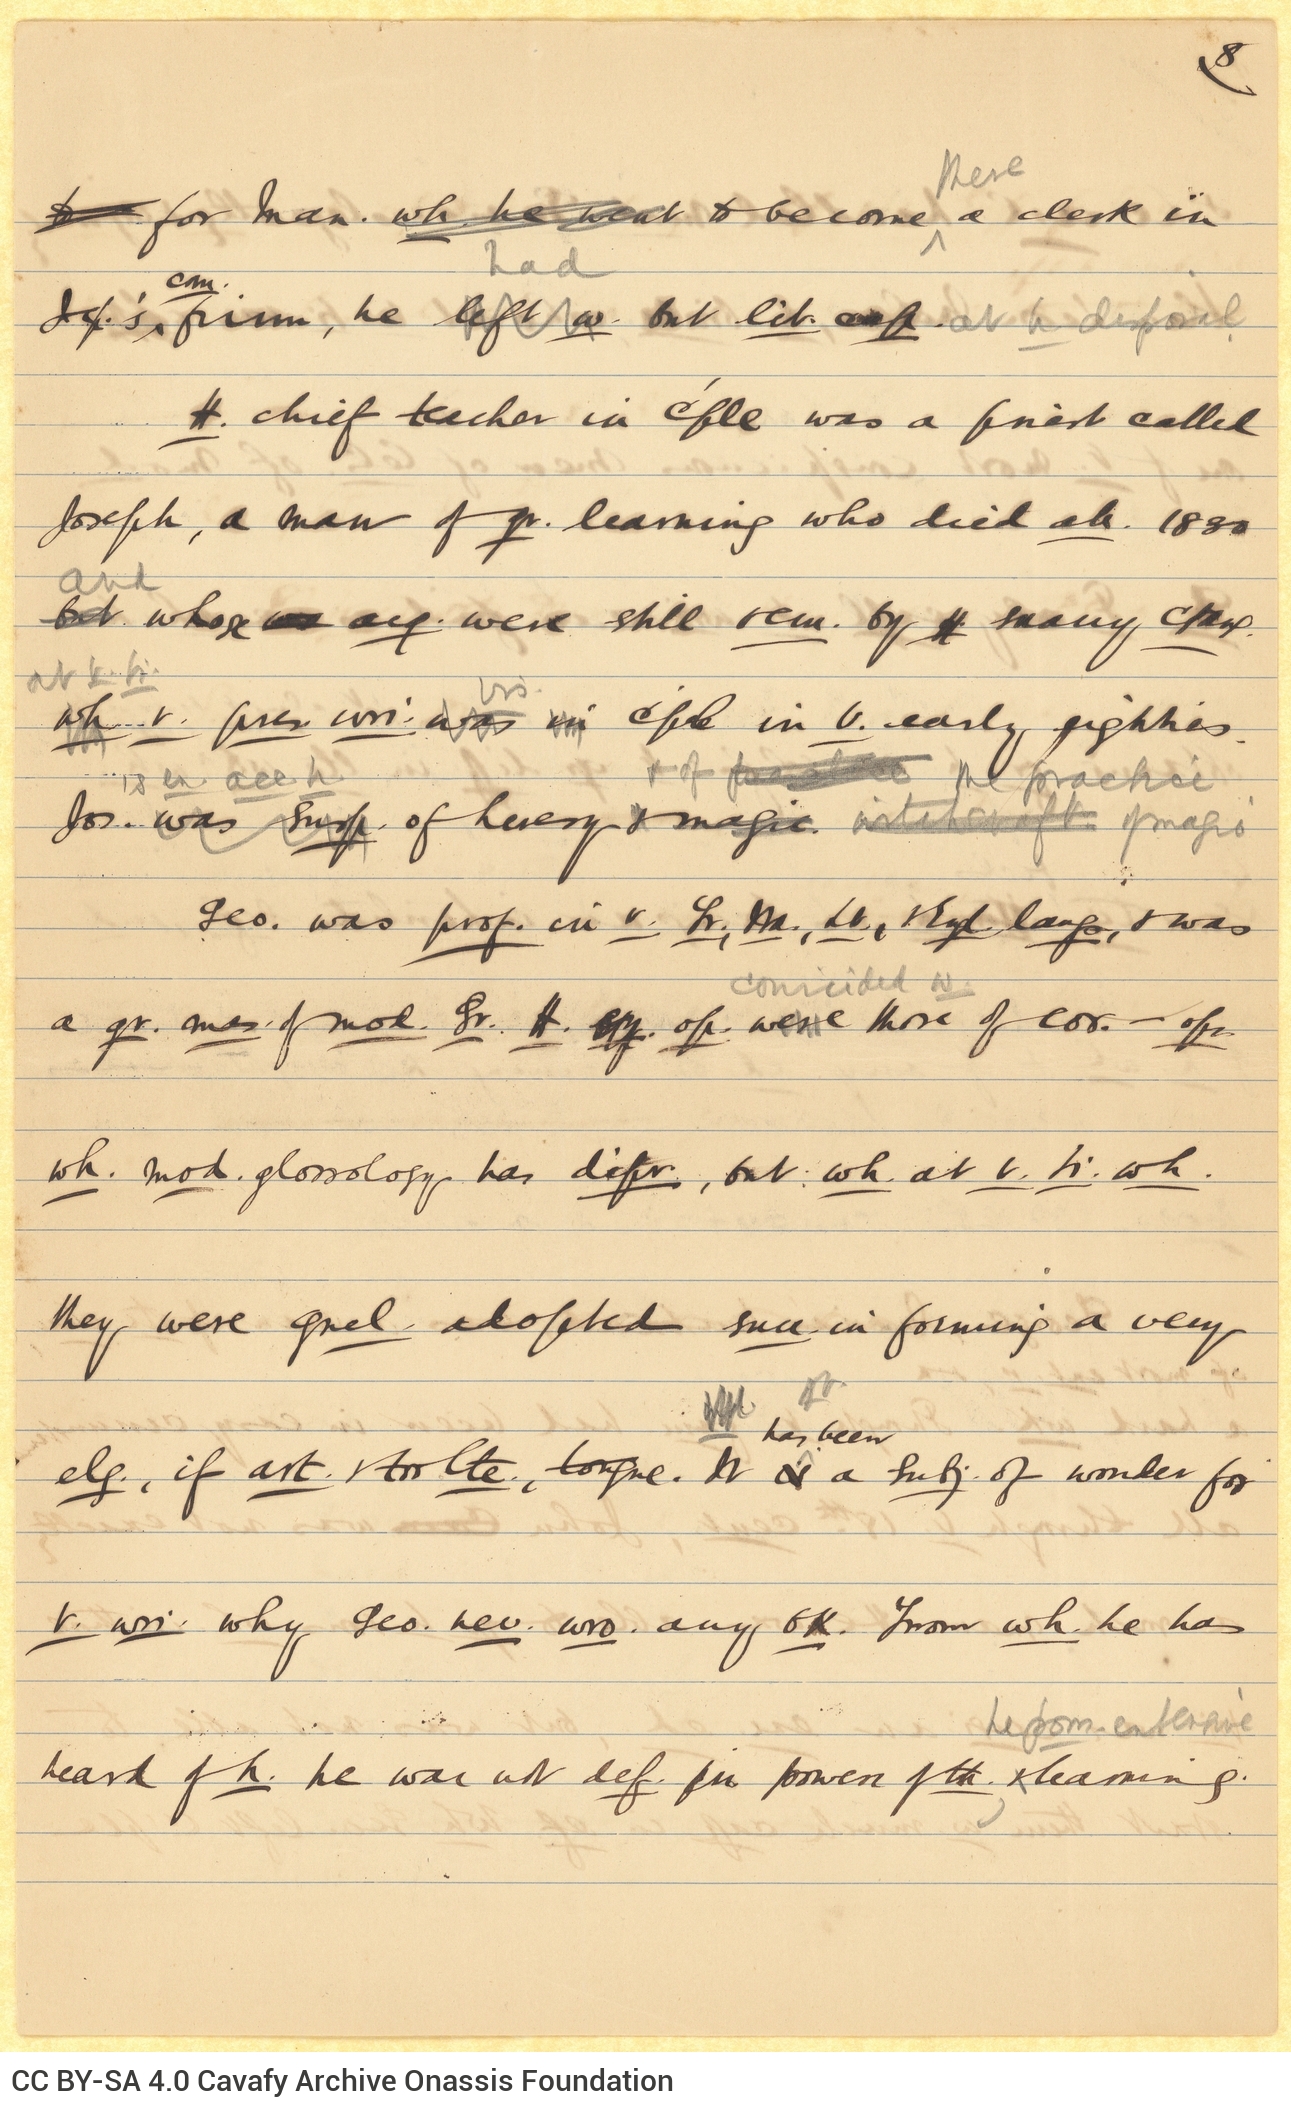 8
there
for Man. wh he went to become a clerk in
had
com.
's firm, he left w. but lit. at h disposal
H. chief teacher in C'ple was a priest called
Joseph, a man of gr. learning who died ab. 1880
and
but whose were still rem. by many
at t. ti. vis.
wh v. pres. wri. was in C'ple in v. early eighties.
is un acc h & of the practice
Jos. was susp. of heresy & magic. witchcraft. of magic
Geo. was prof. in v. Gr., Ita., Lt., & Engl. langs, & was
coincided w.
a gr. mas. of mod. Gr. H. op. were those of Cor. — op.
wh. mod. glossology has , but wh. at v. ti. wh.
they were gnel. adopted succ. in forming a very
has been
elg., if art. , tongue. It is a subj. of wonder for
v. wri. why Geo. nev. wro. any bk. From wh. he has
he poss. extensive
heard of h. he was not def. in powers of th. & learning.
CC BY-SA 4.0 Cavafy Archive Onassis Foundation